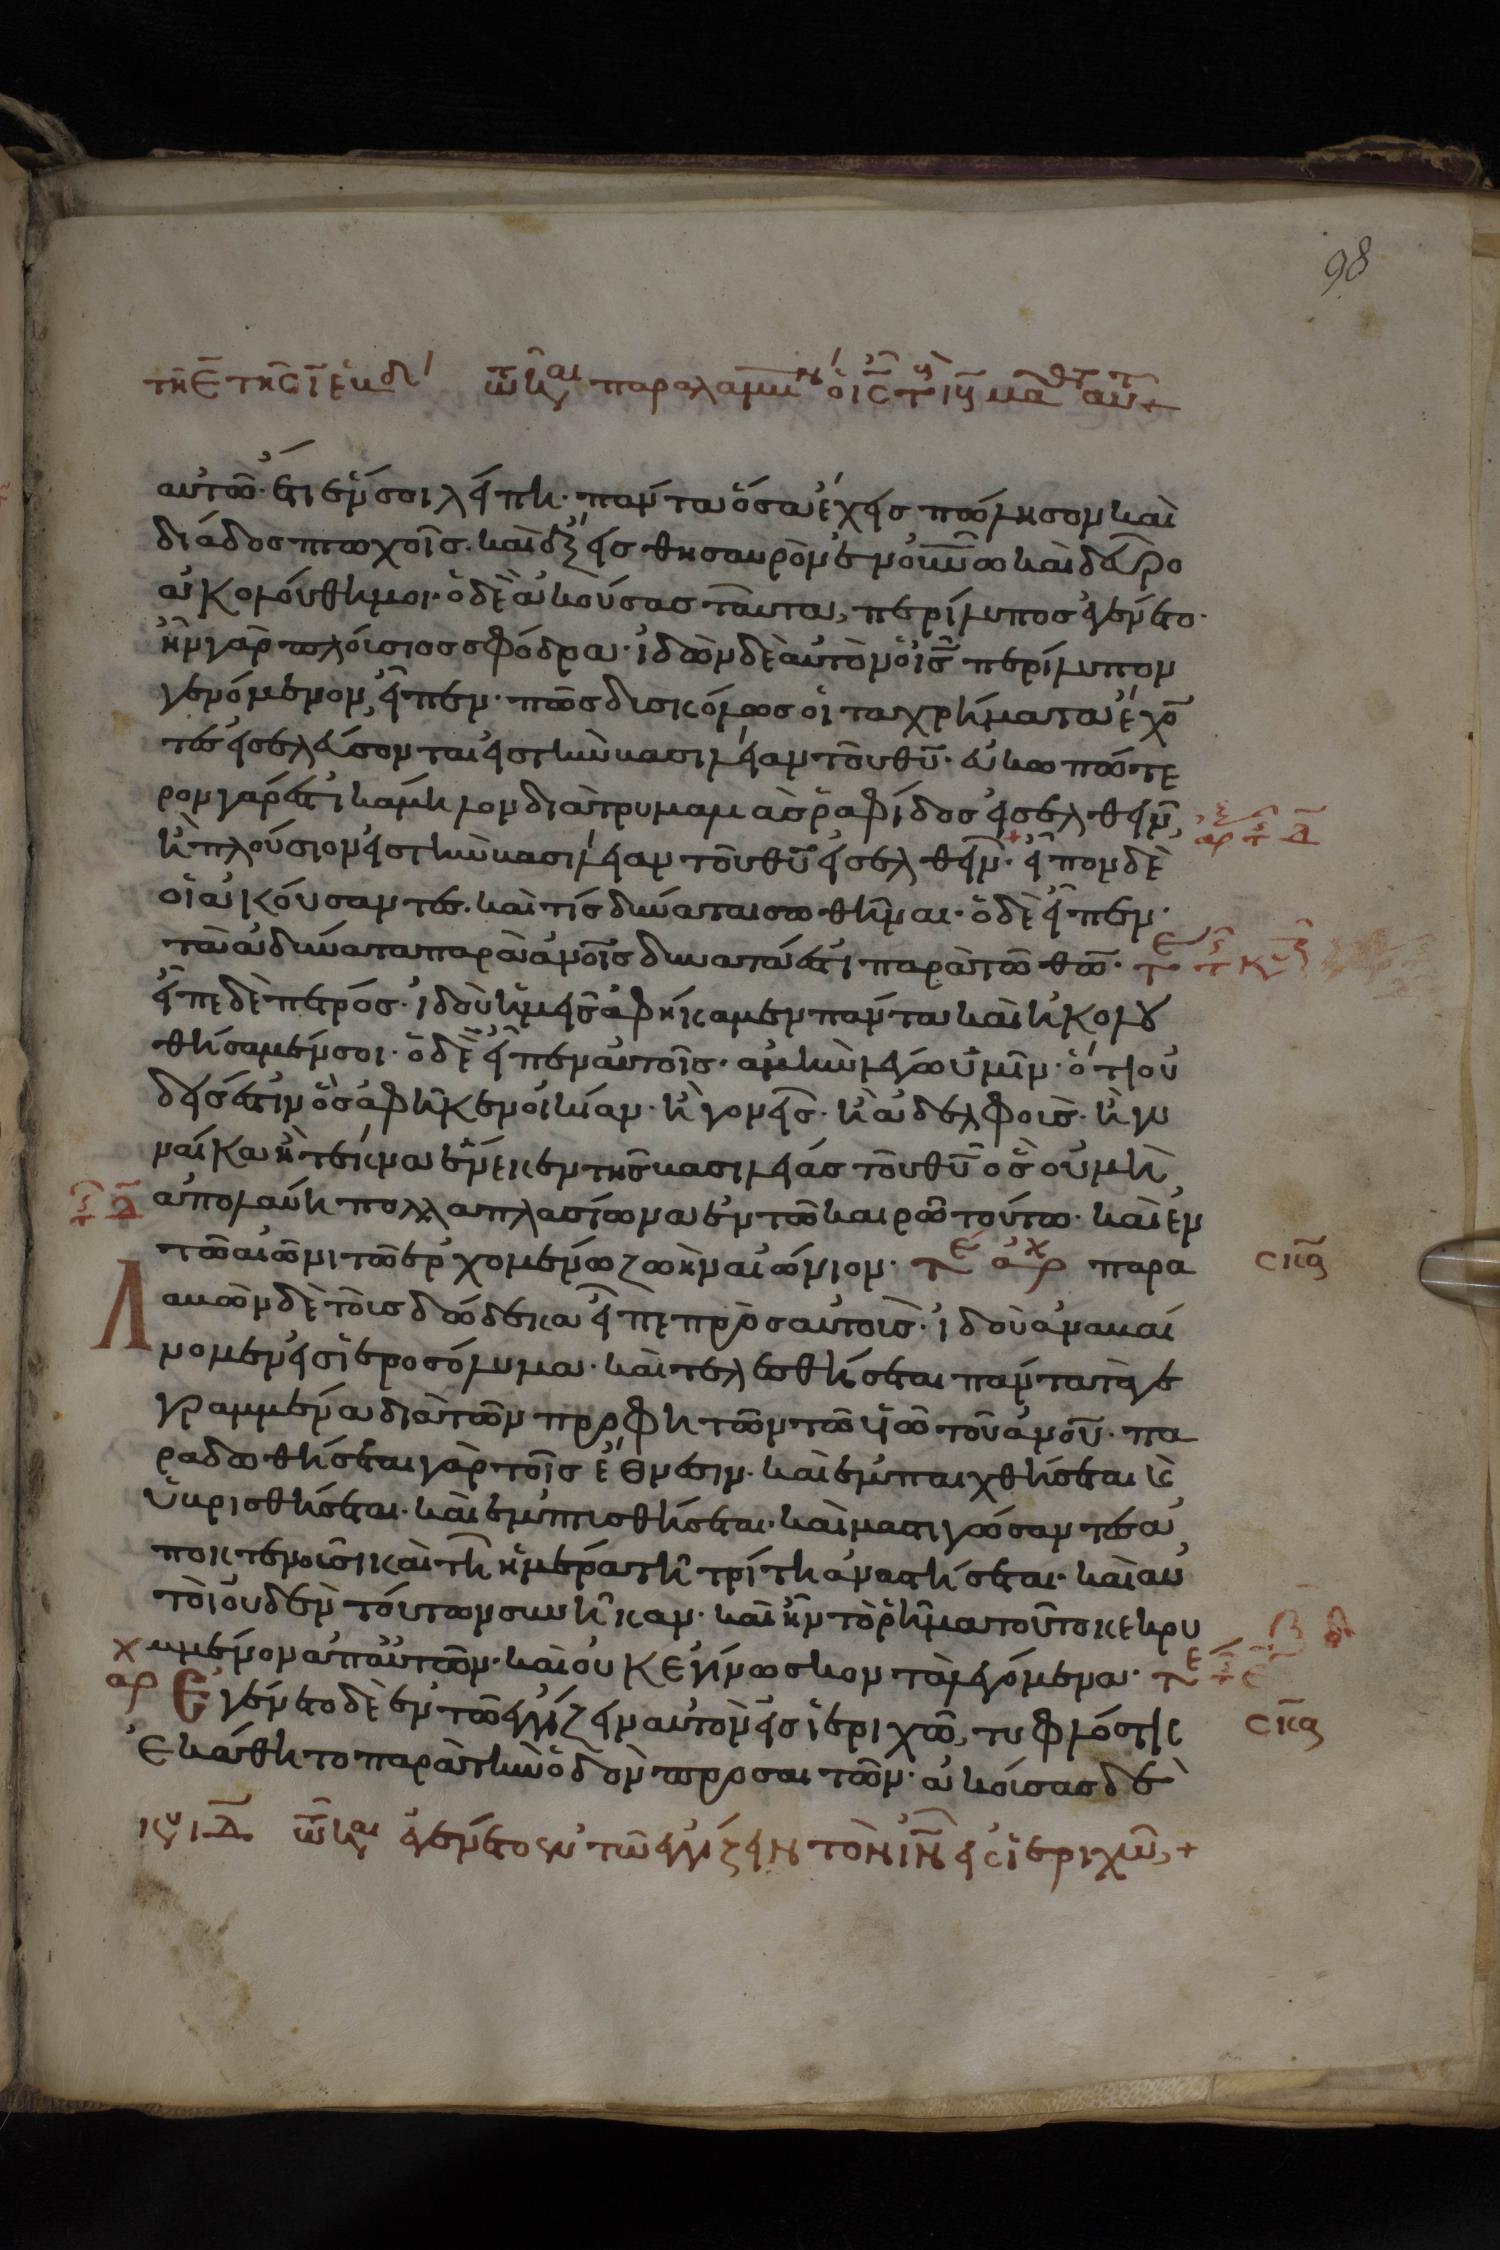 98
τῆ ε τῆς ιε ἑβδ τῶ καιρῶ παραλαμβάν ὁ ις τοὺς ιβ μαθητ αὐτ +
αὐτῶ· ἔτι ἕν σοι λείπει· πάντα ὅσα ἔχεις πώλησον καὶ
διάδος πτωχοῖς· καὶ ἕξεις θησαυρὸν ἐν οὐνῶ καὶ δεῦρο
ἀκολούθει μοι· ὁ δὲ ἀκούσας ταῦτα, περίλυπος ἐγένετο·
ἦν γὰρ πλούσιος σφόδρα· ἰδὼν δὲ αὐτὸν ὁ ις περίλυπον
γενόμενον, εἶπεν· πῶς δυσκόλως οἱ τὰ χρήματα ἔχον
τες εἰσελεύσονται εἰς τὴν βασιλείαν τοῦ θυ· εὐκοπώτε
ρον γάρ ἐστι κάμηλον διὰ τρυμαλιᾶς ῥαφίδος εἰσελθεῖν,
ἢ πλούσιον εἰς τὴν βασιλείαν τοῦ θυ εἰσελθεῖν· εἶπον δὲ
οἱ ἀκούσαντες· καὶ τίς δύναται σωθῆναι· ὁ δὲ εἶπεν·
τὰ ἀδύνατα παρὰ ἀνοις δυνατά ἐστι παρὰ τῶ θῶ·
εἶπε δὲ πέτρος· ἰδοὺ ἡμεῖς ἀφήκαμεν πάντα καὶ ἠκολου
θήσαμέν σοι· ὁ δὲ εἶπεν αὐτοῖς· ἀμὴν λέγω ὑμῖν· ὅτι οὐ
δείς ἐστιν ὃς ἀφῆκεν οἰκίαν· ἢ γονεῖς· ἢ ἀδελφοὺς· ἢ γυ
ναίκα ἢ τέκνα ἕνεκεν τῆς βασιλείας τοῦ θυ ὃς οὐ μὴ
ἀπολάβη πολλαπλασίονα ἐν τῶ καιρῶ τούτω· καὶ ἐν
τῶ αἰῶνι τῶ ἐρχομένω ζωὴν αἰώνιον· τε ἀρχ παρα
λαβὼν δὲ τοὺς δώδεκα εἶπε πρὸς αὐτοὺς· ἰδοὺ ἀναβαί
νομεν εἰς ἱεροσόλυμα· καὶ τελεσθήσεται πάντα τὰ γε
γραμμένα διὰ τῶν προφητῶν τῶ υἱῶ τοῦ ἀνου· πα
ραδοθήσεται γὰρ τοῖς ἔθνεσιν· καὶ ἐμπαιχθήσεται καὶ
ὑβρισθήσεται· καὶ ἐμπτυσθήσεται· καὶ μαστιγώσαντες ἀ
ποκτενοῦσι καὶ τῆ ἡμέρα τῆ τρίτη ἀναστήσεται· καὶ αὐ
τοὶ οὐδὲν τούτων συνῆκαν· καὶ ἦν τὸ ῥῆμα τοῦτο κεκρυ
μμένον ἀπ' αὐτῶν· καὶ οὐκ ἐγίνωσκον τὰ λεγόμενα·
ἀρχ Ἐγένετο δὲ ἐν τῶ ἐγγίζειν αὐτὸν εἰς ἱεριχῶ, τυφλός τις
ἐκάθητο παρὰ τὴν ὁδὸν προσαιτῶν· ἀκούσας δὲ
κυ ιδ τῶ καιρῶ ἐγένετο ἐν τῶ ἐγγίζειν τὸν ιν εἰς ἱεριχῶ, +